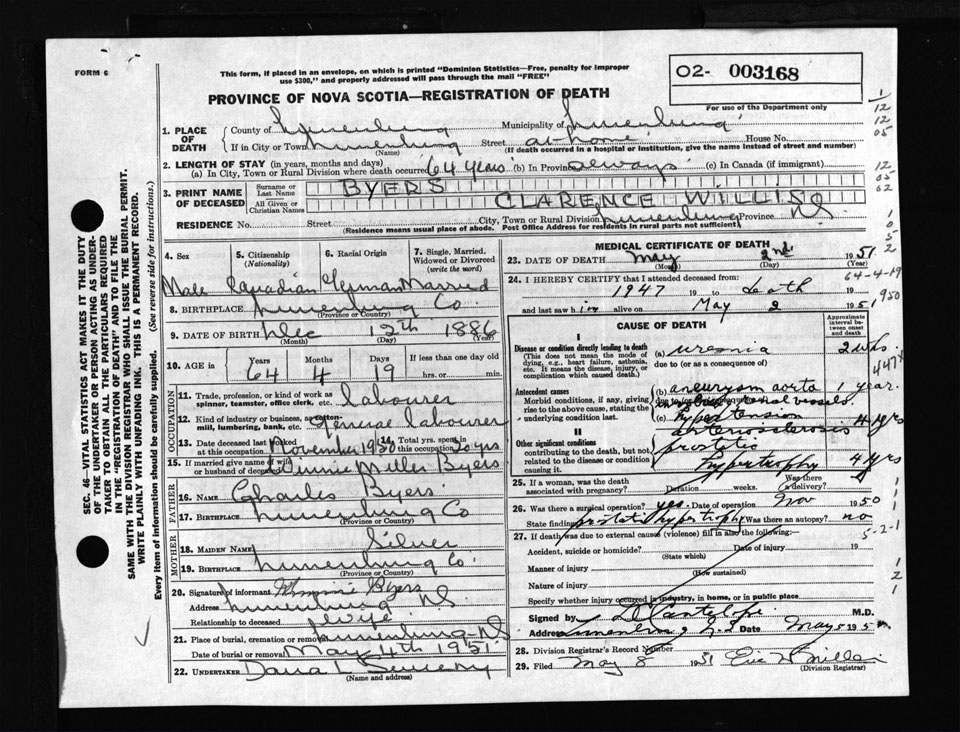 FORM 6
This form, if placed in an envelope, on which is printed "Dominion Statistics—Free, penalty for improper
use $300," and properly addressed will pass through the mail "FREE"
02- 003168
For use of the Department only
PROVINCE OF NOVA SCOTIA—REGISTRATION OF DEATH
1. PLACE OF DEATH
County of Lunenburg Municipality of Lunenburg
If in City or Town Lunenburg Street at home House No.
(Name) (If death occurred in a hospital or institution, give the name instead of street and number)
2. LENGTH OF STAY (in years, months and days)
(a) In City, Town or Rural Division where death occurred 64 years (b) In Province always (c) In Canada (if immigrant)
3. PRINT NAME OF DECEASED
Surname or Last Name BYERS
All Given or Christian Names CLARENCE WILLIS
RESIDENCE No. Street City, Town or Rural Division Lunenburg Province NS
(Residence means usual place of abode. Post Office Address for residents in rural parts not sufficient)
4. Sex 5. Citizenship (Nationality) 6. Racial Origin 7. Single, Married, Widowed or Divorced (write the word)
Male Canadian German Married
8. BIRTHPLACE Lunenburg Co.
(Province or Country)
9. DATE OF BIRTH Dec 13th 1886
(Month) (Day) (Year)
10. AGE in Years Months Days If less than one day old
64 4 19 hrs. or min.
OCCUPATION
11. Trade, profession, or kind of work as spinner, teamster, office clerk, etc. labourer
12. Kind of industry or business, as cotton-mill, lumbering, bank, etc. General labourer
13. Date deceased last worked at this occupation November 1950 Total yrs. spent in this occupation 30 yrs
15. If married give name of wife or husband of deceased Winnie Miller Byers
FATHER
16. NAME Charles Byers
17. BIRTHPLACE Lunenburg Co
(Province or Country)
MOTHER
18. MAIDEN NAME Silver
19. BIRTHPLACE Lunenburg Co.
(Province or Country)
20. Signature of informant Winnie Byers
Address Lunenburg NS
Relationship to deceased wife
21. Place of burial, cremation or removal Lunenburg NS
Date of burial or removal May 4th 1951
22. UNDERTAKER Dana L Sweeny
(Name and address)
MEDICAL CERTIFICATE OF DEATH
23. DATE OF DEATH May 2nd 1951
(Month) (Day) (Year)
64-4-19
24. I HEREBY CERTIFY that I attended deceased from
1947 19 to death 19
and last saw him alive on May 2 1951
950
CAUSE OF DEATH
Approximate interval between onset and death
I
Disease or condition directly leading to death
(This does not mean the mode of dying, e.g., heart failure, asthenia, etc. It means the disease, injury, or complication which caused death.)
(a) uremia 2 wks.
due to (or as a consequence of)
447X
Antecedent causes
Morbid conditions, if any, giving rise to the above cause, stating the underlying condition last.
(b) aneurysm aorta 1 year.
vessels
(c) hypertension
arteriosclerosis 4 yrs
II
Other significant conditions
contributing to the death, but not related to the disease or condition causing it.
prostatic
hypertrophy 4 yrs
25. If a woman, was the death associated with pregnancy? Duration weeks. Was there a delivery?
26. Was there a surgical operation? yes. Date of operation Nov 1950
State findings prostatic hypertrophy Was there an autopsy? no
27. If death was due to external causes (violence) fill in also the following:
Accident, suicide or homicide? Date of injury 19
(State which)
Manner of injury
(How sustained)
Nature of injury
Specify whether injury occurred in industry, in home, or in public place
Signed by D Cantelope M.D.
Address Lunenburg N.S Date May 5 195
28. Division Registrar's Record Number
29. Filed May 8 1951
(Division Registrar)
SEC. 46—VITAL STATISTICS ACT MAKES IT THE DUTY
OF THE UNDERTAKER OR PERSON ACTING AS UNDER-
TAKER TO OBTAIN ALL THE PARTICULARS REQUIRED
IN THE "REGISTRATION OF DEATH" AND TO FILE THE
SAME WITH THE DIVISION REGISTRAR WHO SHALL ISSUE THE BURIAL PERMIT.
WRITE PLAINLY WITH UNFADING INK. THIS IS A PERMANENT RECORD.
Every item of information should be carefully supplied. (See reverse side for instructions.)
1
12
12
05
12
05
62
1
0
5
2
1
1
5-2-1
1
2
1